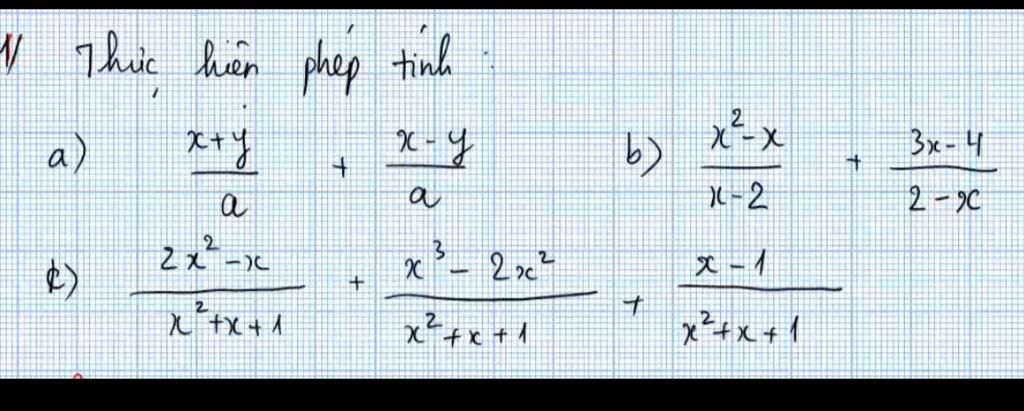 1/ Thực hiện phép tính :
a) \frac{x+y}{a} + \frac{x-y}{a} b) \frac{x^2-x}{x-2} + \frac{3x-4}{2-x}
c) \frac{2x^2-x}{x^2+x+1} + \frac{x^3-2x^2}{x^2+x+1} + \frac{x-1}{x^2+x+1}